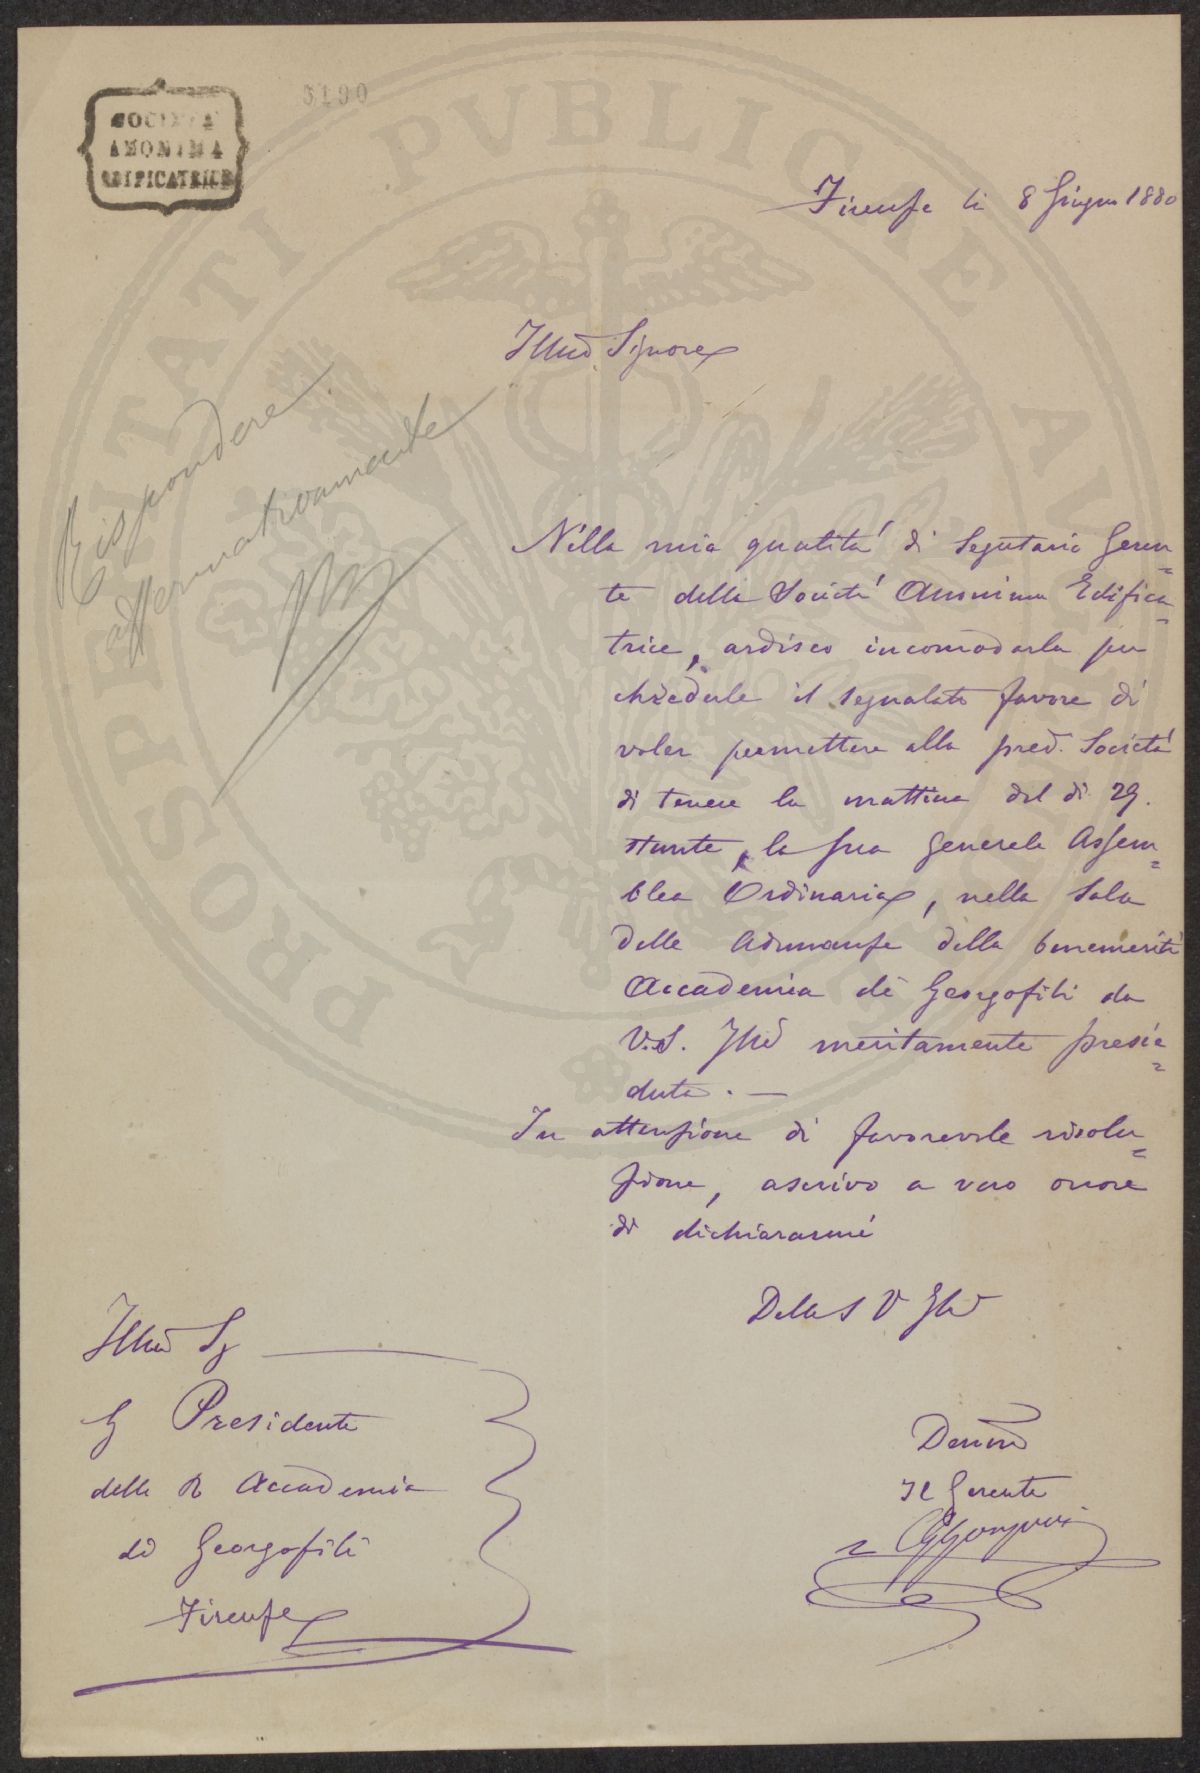 SOCIETÀ
ANONIMA
EDIFICATRICE
5190
PROSPERITATI PVBLICAE AVGENDAE
Firenze li 8 Giugno 1880
Illmo Signore
Rispondere
affermativamente
Nella mia qualità di Segretario Geren=
te della Società Anonima Edifica=
trice, ardisco incomodarla per
chiederle il segnalato favore di
voler permettere alla pred. Società
di tenere la mattina del dì 29.
stante, la sua generale Assem=
blea Ordinaria, nella Sala
delle Adunanze della benemerita
Accademia dei Georgofili da
V.S. Illma meritamente presie=
duta. —
In attenzione di favorevole risolu=
zione, ascrivo a vero onore
di dichiararmi
Della S V Illma
Illmo Sig
Il Presidente
della R Accademia
dei Georgofili
Firenze
Devmo
Il Gerente